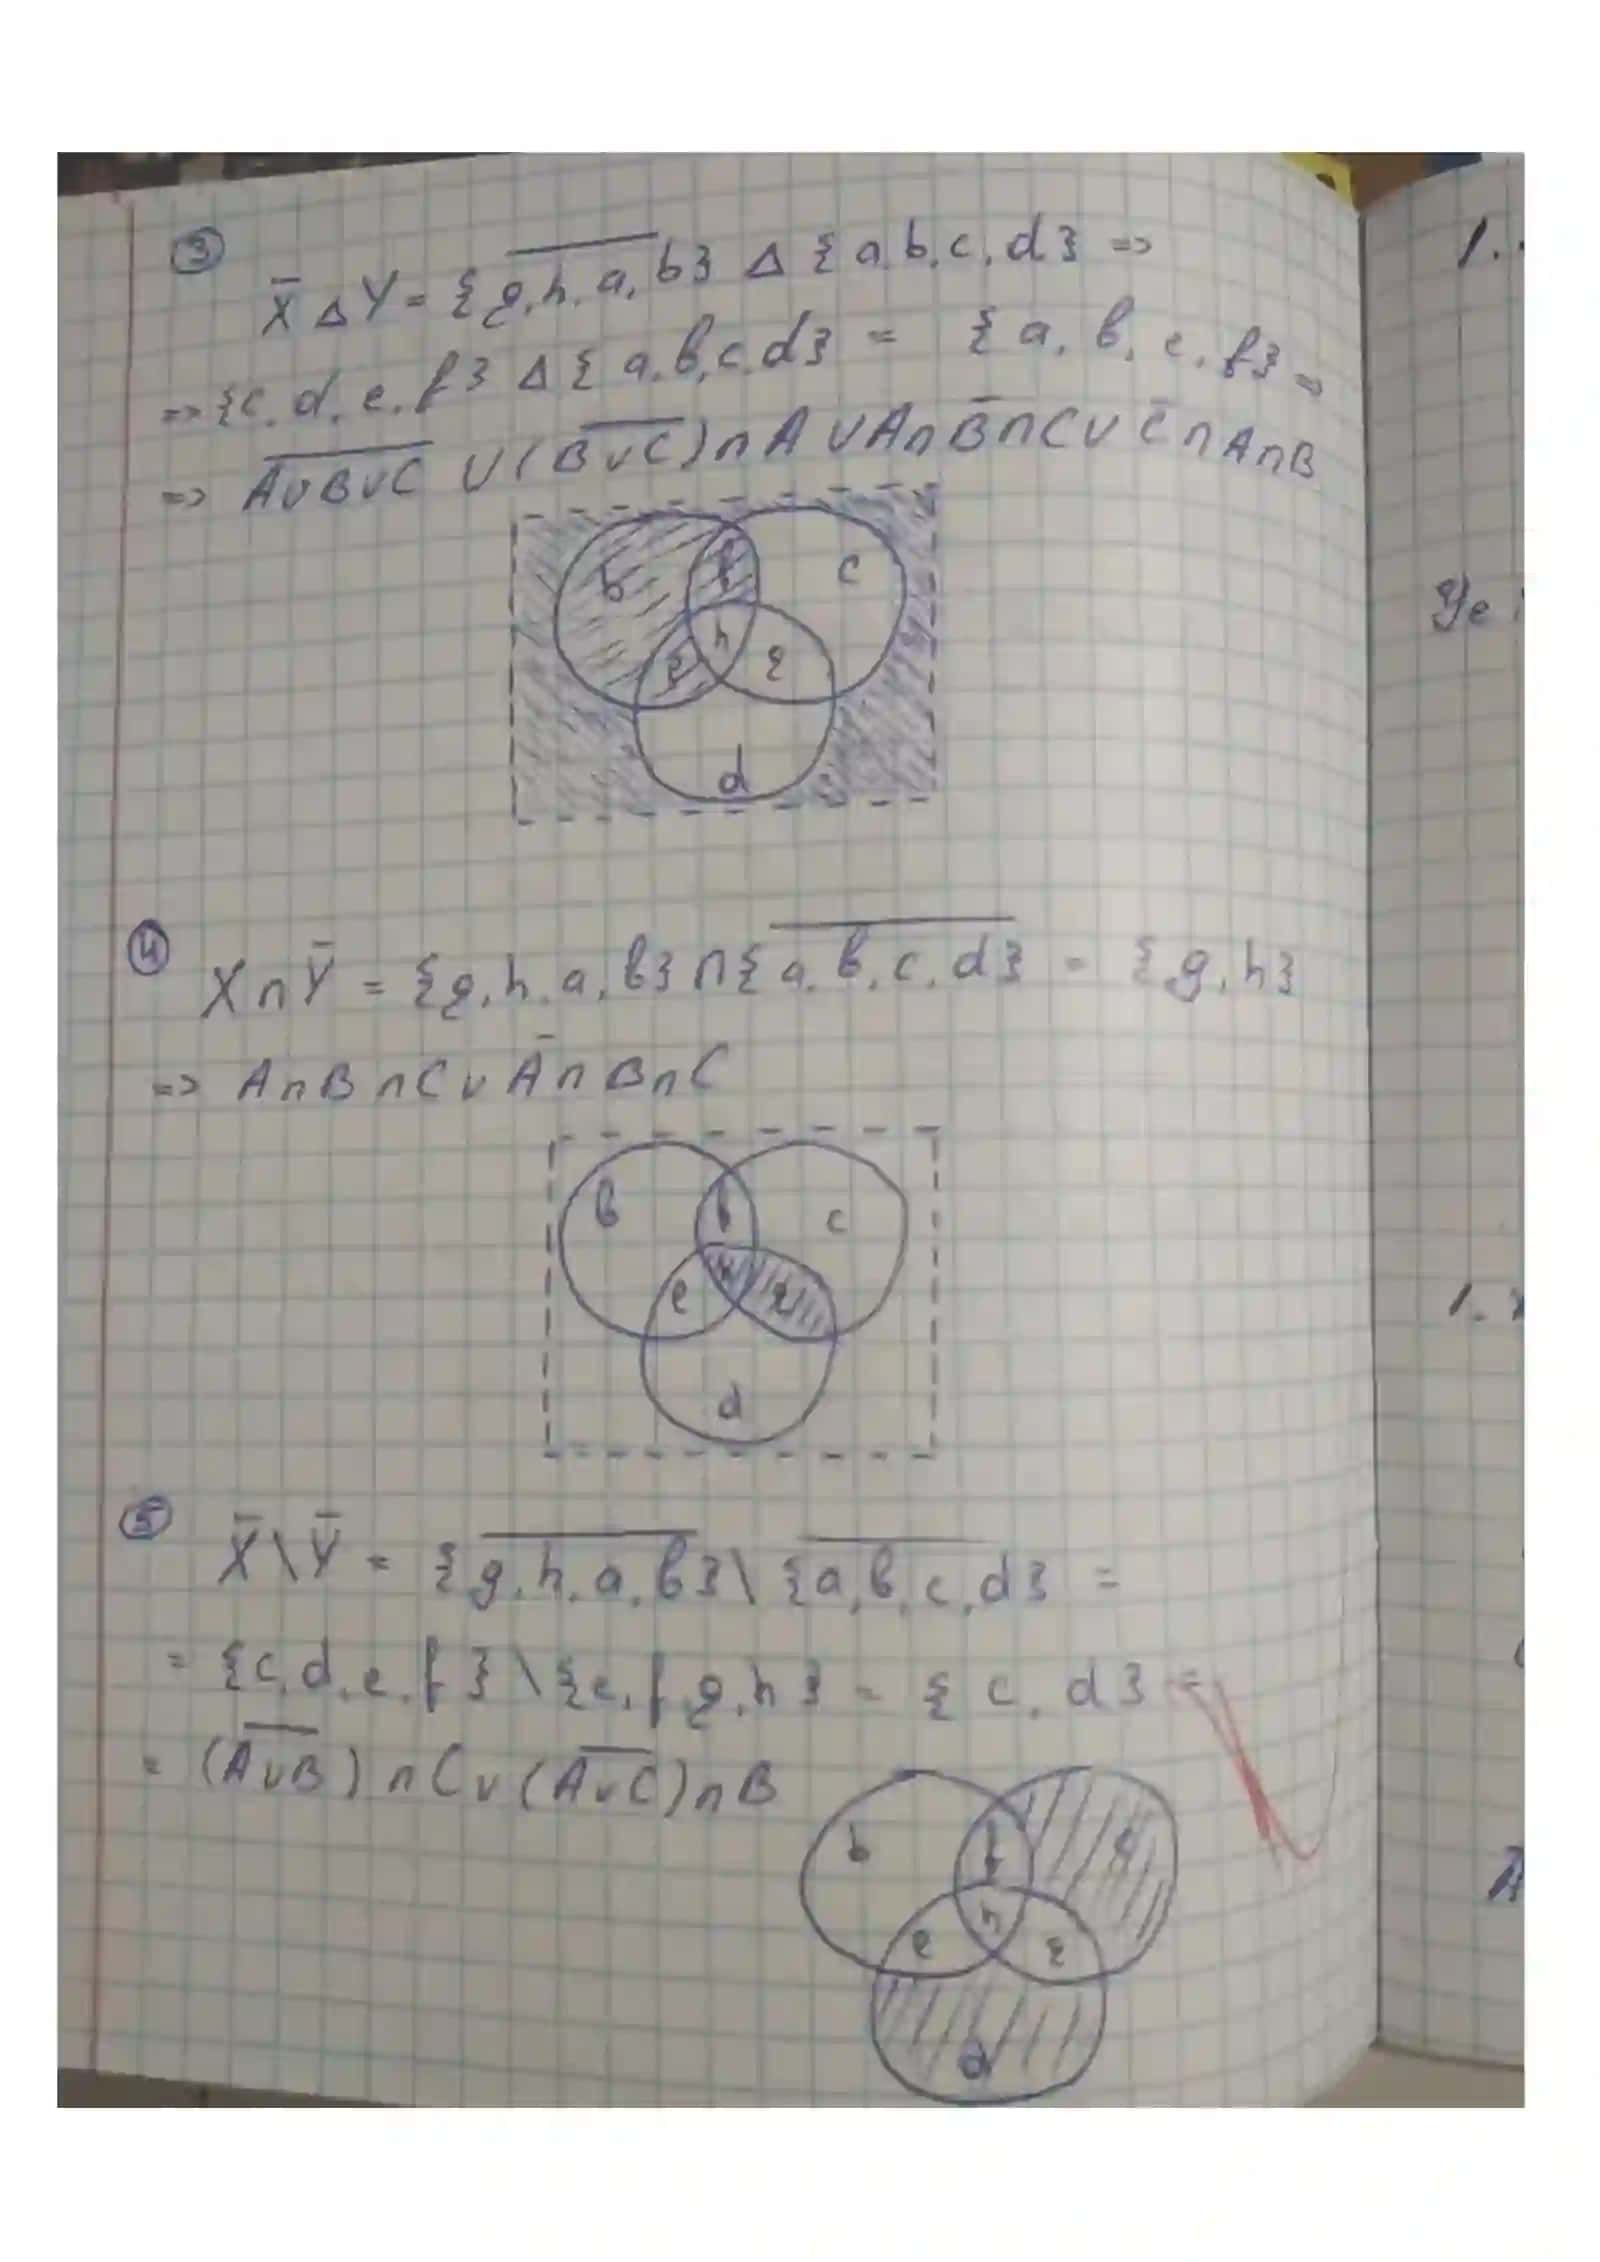 ③
X̄ △ Y = {g, h, a, b}̅ △ {a, b, c, d} =>
=> {c, d, e, f} △ {a, b, c, d} = {a, b, e, f} =>
=> A̅∪̅B̅∪̅C̅ ∪ (B̅∪̅C̅) ∩ A ∪ A ∩ B̄ ∩ C ∪ C̄ ∩ A ∩ B
b f c
h
e g
d
④
X ∩ Ȳ = {g, h, a, b} ∩ {a̅,̅ b̅,̅ c̅,̅ d̅} = {g, h}
=> A ∩ B ∩ C ∪ Ā ∩ B ∩ C
b f c
h
e g
d
⑤
X̄ \ Ȳ = {g̅,̅ h̅,̅ a̅,̅ b̅} \ {a̅,̅ b̅,̅ c̅,̅ d̅} =
= {c, d, e, f} \ {e, f, g, h} = {c, d} =
= (A̅∪̅B̅) ∩ C ∪ (A̅∪̅C̅) ∩ B
b f c
h
e g
d
1.
1.